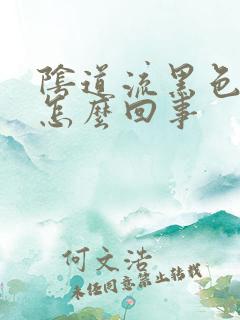 陰道流黑色
怎麼回事
何文浩
未經同意禁止轉載